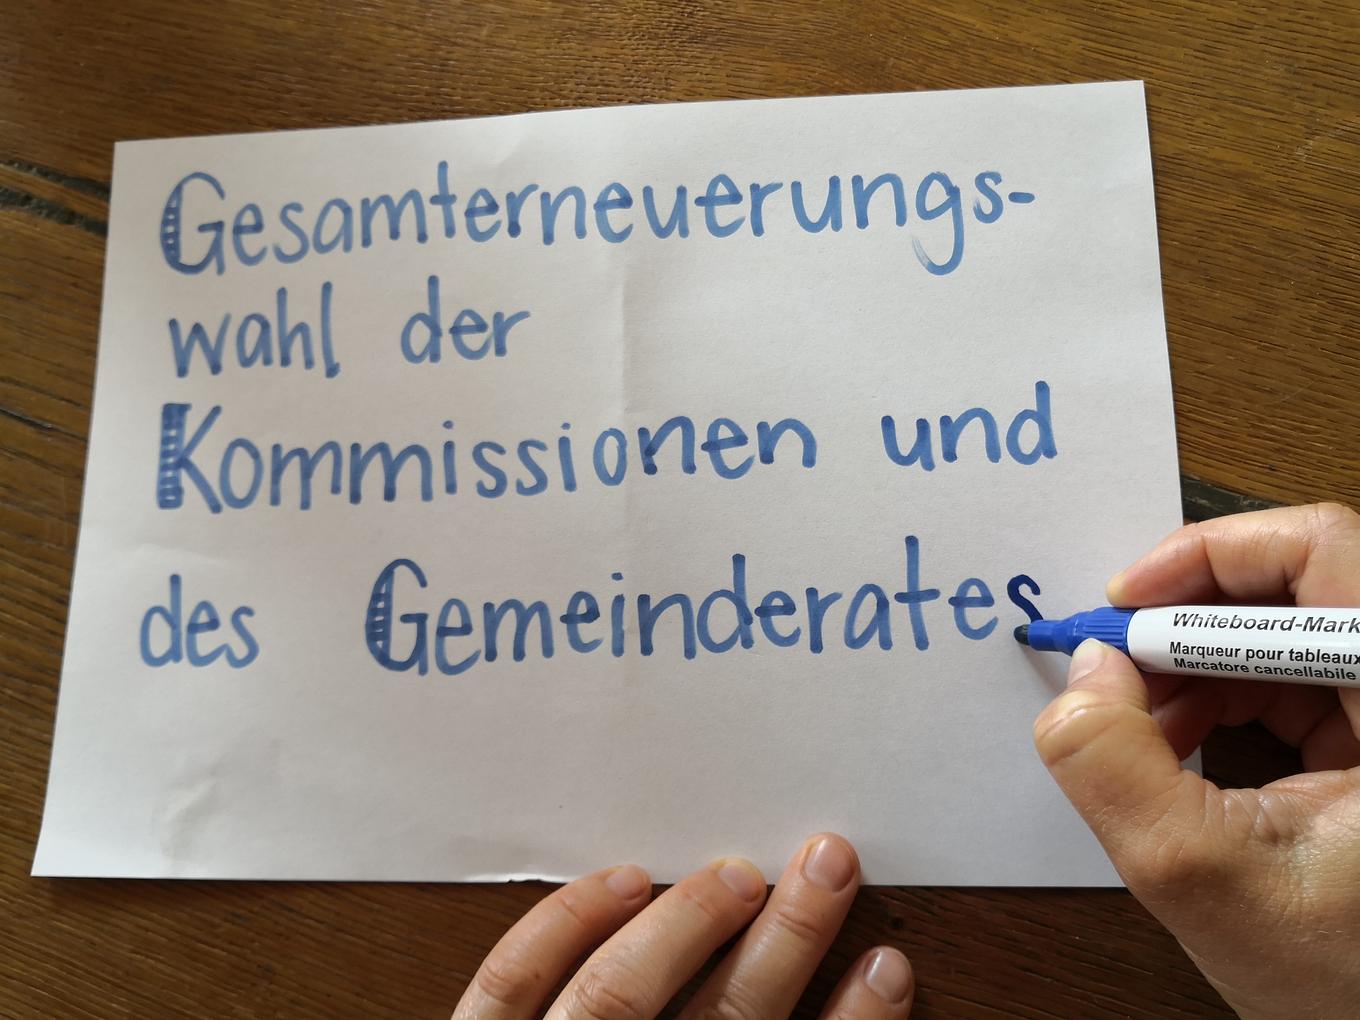 Gesamterneuerungs-
wahl der
Kommissionen und
des Gemeinderates
Whiteboard-Mark
Marqueur pour tableaux
Marcatore cancellabile